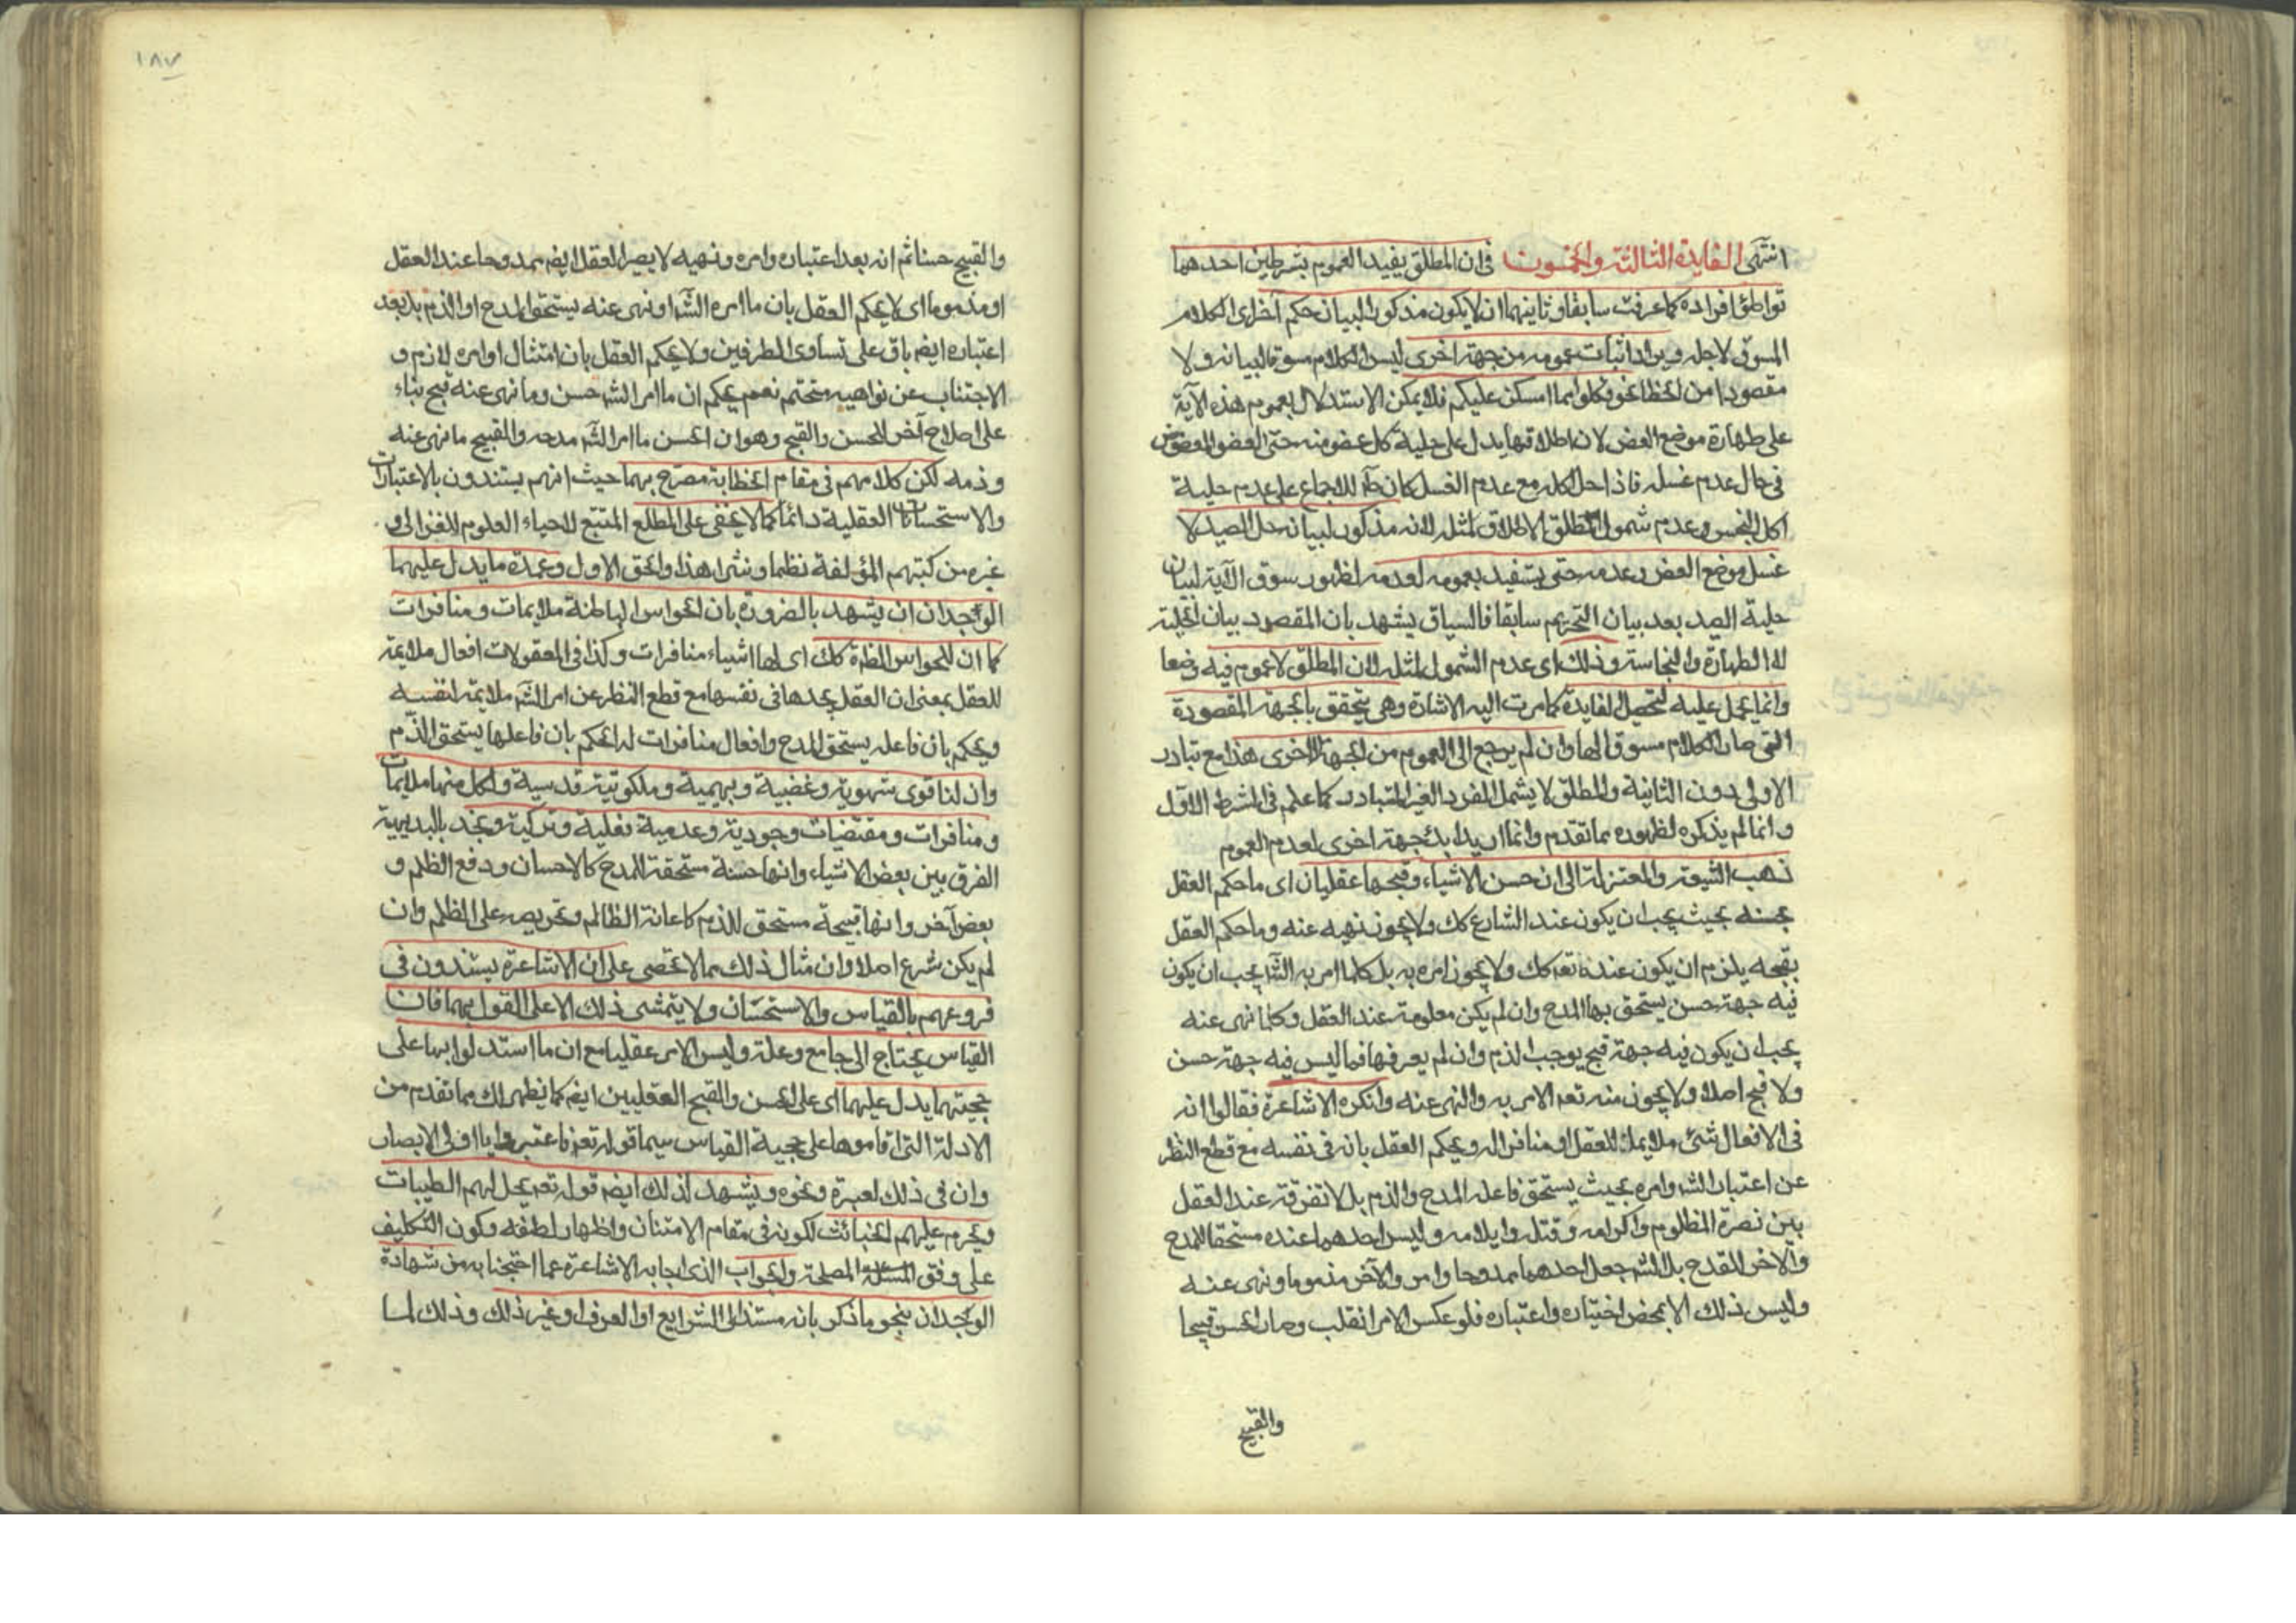 انتهى الفايدة الثالثة والخمسون في ان المطلق يفيد العموم بشرطين احدهما
تواطؤ افراده كما عرفت سابقا وثانيهما ان لا يكون مذكورا لبيان حكم آخر اى الكلام
المسوق لاجله ويراد اثبات عمومه من جهة اخرى ليس الكلام مسوقا لبيانه ولا
مقصودا من الخطا نحو فكلوا مما امسكن عليكم فلا يمكن الاستدلال بعموم هذه الآية
على طهارة موضع العض لان اطلاقها يدل على حلية كل عضو منه حتى العضو المعضوض
في حال عدم غسله فاذا حل اكله مع عدم الغسل كان طآ للاجماع على عدم حلية
اكل النجس وعدم شمول المطلق الاطلاق لمثله لانه مذكور لبيان حل الصيد لا
غسل موضع العض وعدمه حتى يستفيد بعمومه لعدمه لظهور سوق الآية لبيان
حلية الصيد بعد بيان التحريم سابقا فالسياق يشهد بان المقصود بيان الحلية
لا الطهارة والنجاسة وذلك اى عدم الشمول لمثله لان المطلق لا عموم فيه وضعا
وانما يحمل عليه لتحصيل الفايدة كما مرت اليه الاشارة وهي يتحقق بالجهة المقصودة
التي صار الكلام مسوقا لها وان لم يرجع الى العموم من الجهة الاخرى هذا مع تبادر
الاولى دون الثانية والمطلق لا يشمل الفرد الغير المتبادر كما علم في الشرط الاول
وانما لم يذكره لظهوره مما تقدم وانما اريد ابداء جهة اخرى لعدم العموم
ذهب الشيعة والمعتزلة الى ان حسن الاشياء وقبحها عقليان اى ما حكم العقل
بحسنه بحيث يجب ان يكون عند الشارع كك ولا يجوز نهيه عنه وما حكم العقل
بقبحه يلزم ان يكون عنده تعه كك ولا يجوز امره به بل كلما امر به الشا يجب ان يكون
فيه جهة حسن يستحق بها المدح وان لم يكن معلومة عند العقل وكلما نهى عنه
يجب ان يكون فيه جهة قبح يوجب الذم وان لم يعرفها فما ليس فيه جهة حسن
ولا قبح اصلا ولا يجوز منه تعه الامر به والنهى عنه وانكره الاشاعرة فقالوا انه
في الافعال شئ ملايما للعقل او منافرا له ويحكم العقل بانه في نفسه مع قطع النظر
عن اعتبار الشه وامره بحيث يستحق فاعله المدح والذم بل لا تفرقة عند العقل
بين نصرة المظلوم واكرامه وقتله وايلامه وليس احدهما عنده مستحقا للمدح
والآخر للقدح بل الشه جعل احدهما ممدوحا وامر والآخر مذموما ونهى عنه
وليس ذلك الا بمحض اختياره واعتباره فلو عكس الامر انقلب وصار الحسن قبيحا
والقبيح
١٨٧
والقبيح حسنا ثم انه بعد اعتباره وامره ونهيه لا يصير العقل ايضه ممدوحا عند العقل
او مذموما اى لا يحكم العقل بان ما امره الشا او نهى عنه يستحق المدح او الذم بل بعد
اعتباره ايضه باق على تساوى الطرفين ولا يحكم العقل بان امتثال اوامره لازم و
الاجتناب عن نواهيه متحتم نعم يحكم ان ما امر الشه حسن وما نهى عنه قبيح بناء
على اصلاح آخر للحسن والقبح وهو ان الحسن ما امر الشه مدحه والقبيح ما نهى عنه
وذمه لكن كلامهم في مقام الخطابة مصرح بهما حيث انهم يستندون بالاعتبارات
والاستحسانات العقلية دائما كما لا يخفى على المطلع المتتبع للاحياء العلوم للغزالى و
غيره من كتبهم المؤلفة نظما ونثرا هذا والحق الاول وعمدة ما يدل عليهما
الوجدان ان يشهد بالضرورة بان للحواس الباطنة ملايمات ومنافرات
كما ان للحواس الظاهرة كك اى لها اشياء منافرات وكذا في المعقولات افعال ملايمة
للعقل بمعنى ان العقل يجدها في نفسها مع قطع النظر عن امر الشه ملايمة لنفسه
ويحكم بان فاعله يستحق المدح وافعال منافرات له الحكم بان فاعلها يستحق الذم
وان لنا قوى شهوية وغضبية وبهيمية وملكوتية قدسية ولكل منها ملايمات
ومنافرات ومقتضيات وجودية وعدمية فعلية وتركية ونجد بالبديهية
الفرق بين بعض الاشياء وانها حسنة مستحقة المدح كالاحسان ودفع الظلم و
بعض آخر وانها قبيحة مستحق للذم كاعانة الظالم وتحريصه على الظلم وان
لم يكن شرع اصلا وان مثال ذلك مما لا تحصى على ان الاشاعرة يستندون في
فروعهم بالقياس والاستحسان ولا يتمشى ذلك الا على القول بهما فان
القياس يحتاج الى جامع وعلة وليس الامر عقليا مع ان ما استدلوا بها على
حجيتهما يدل عليهما اى على الحسن والقبح العقليين ايضه كما يظهر لك مما تقدم من
الادلة التي اقاموها على حجية القياس سيما قوله تعه فاعتبروا يا اولى الابصار
وان في ذلك لعبرة ونحوه ويشهد لذلك ايضه قوله تعه يحل لهم الطيبات
ويحرم عليهم الخبائث لكونه في مقام الامتنان واظهار لطفه وكون التكليف
على وفق المصلحة والجواب الذى اجابه الاشاعرة عما احتججنا به من شهادة
الوجدان بنحو ما ذكر بانه مستند الى الشرايع او العرف او غير ذلك وذلك لما